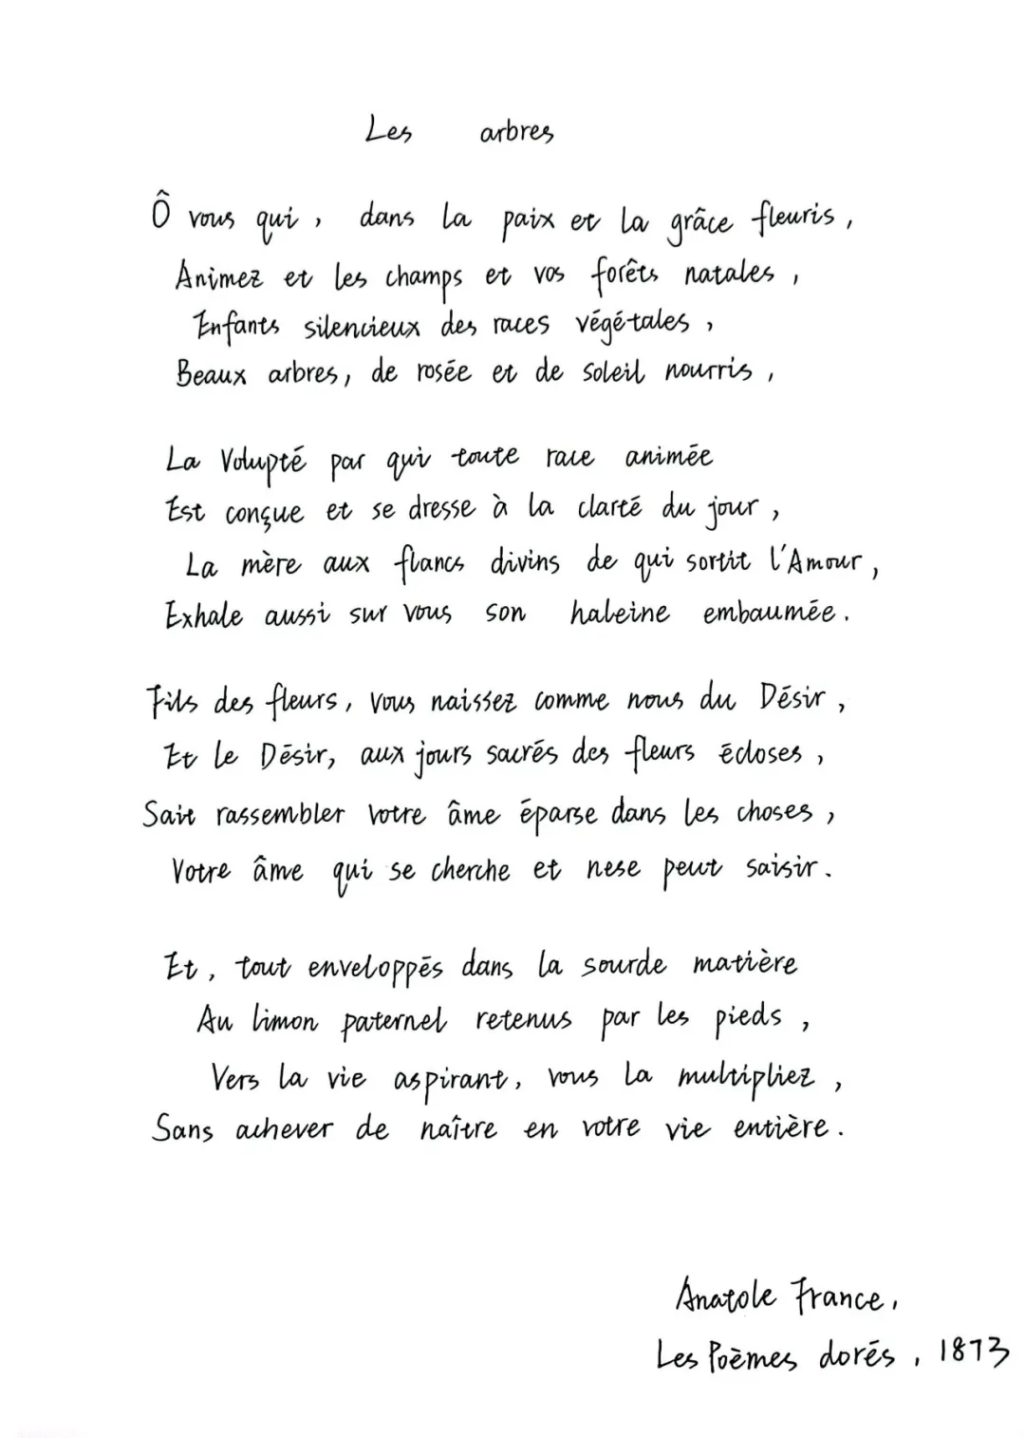 Les arbres
Ô vous qui, dans la paix et la grâce fleuris,
Animez et les champs et vos forêts natales,
Enfants silencieux des races végétales,
Beaux arbres, de rosée et de soleil nourris,
La Volupté par qui toute race animée
Est conçue et se dresse à la clarté du jour,
La mère aux flancs divins de qui sortit l'Amour,
Exhale aussi sur vous son haleine embaumée.
Fils des fleurs, vous naissez comme nous du Désir,
Et le Désir, aux jours sacrés des fleurs écloses,
Sait rassembler votre âme éparse dans les choses,
Votre âme qui se cherche et nese peut saisir.
Et, tout enveloppés dans la sourde matière
Au limon paternel retenus par les pieds,
Vers la vie aspirant, vous la multipliez,
Sans achever de naître en votre vie entière.
Anatole France,
Les Poèmes dorés, 1873